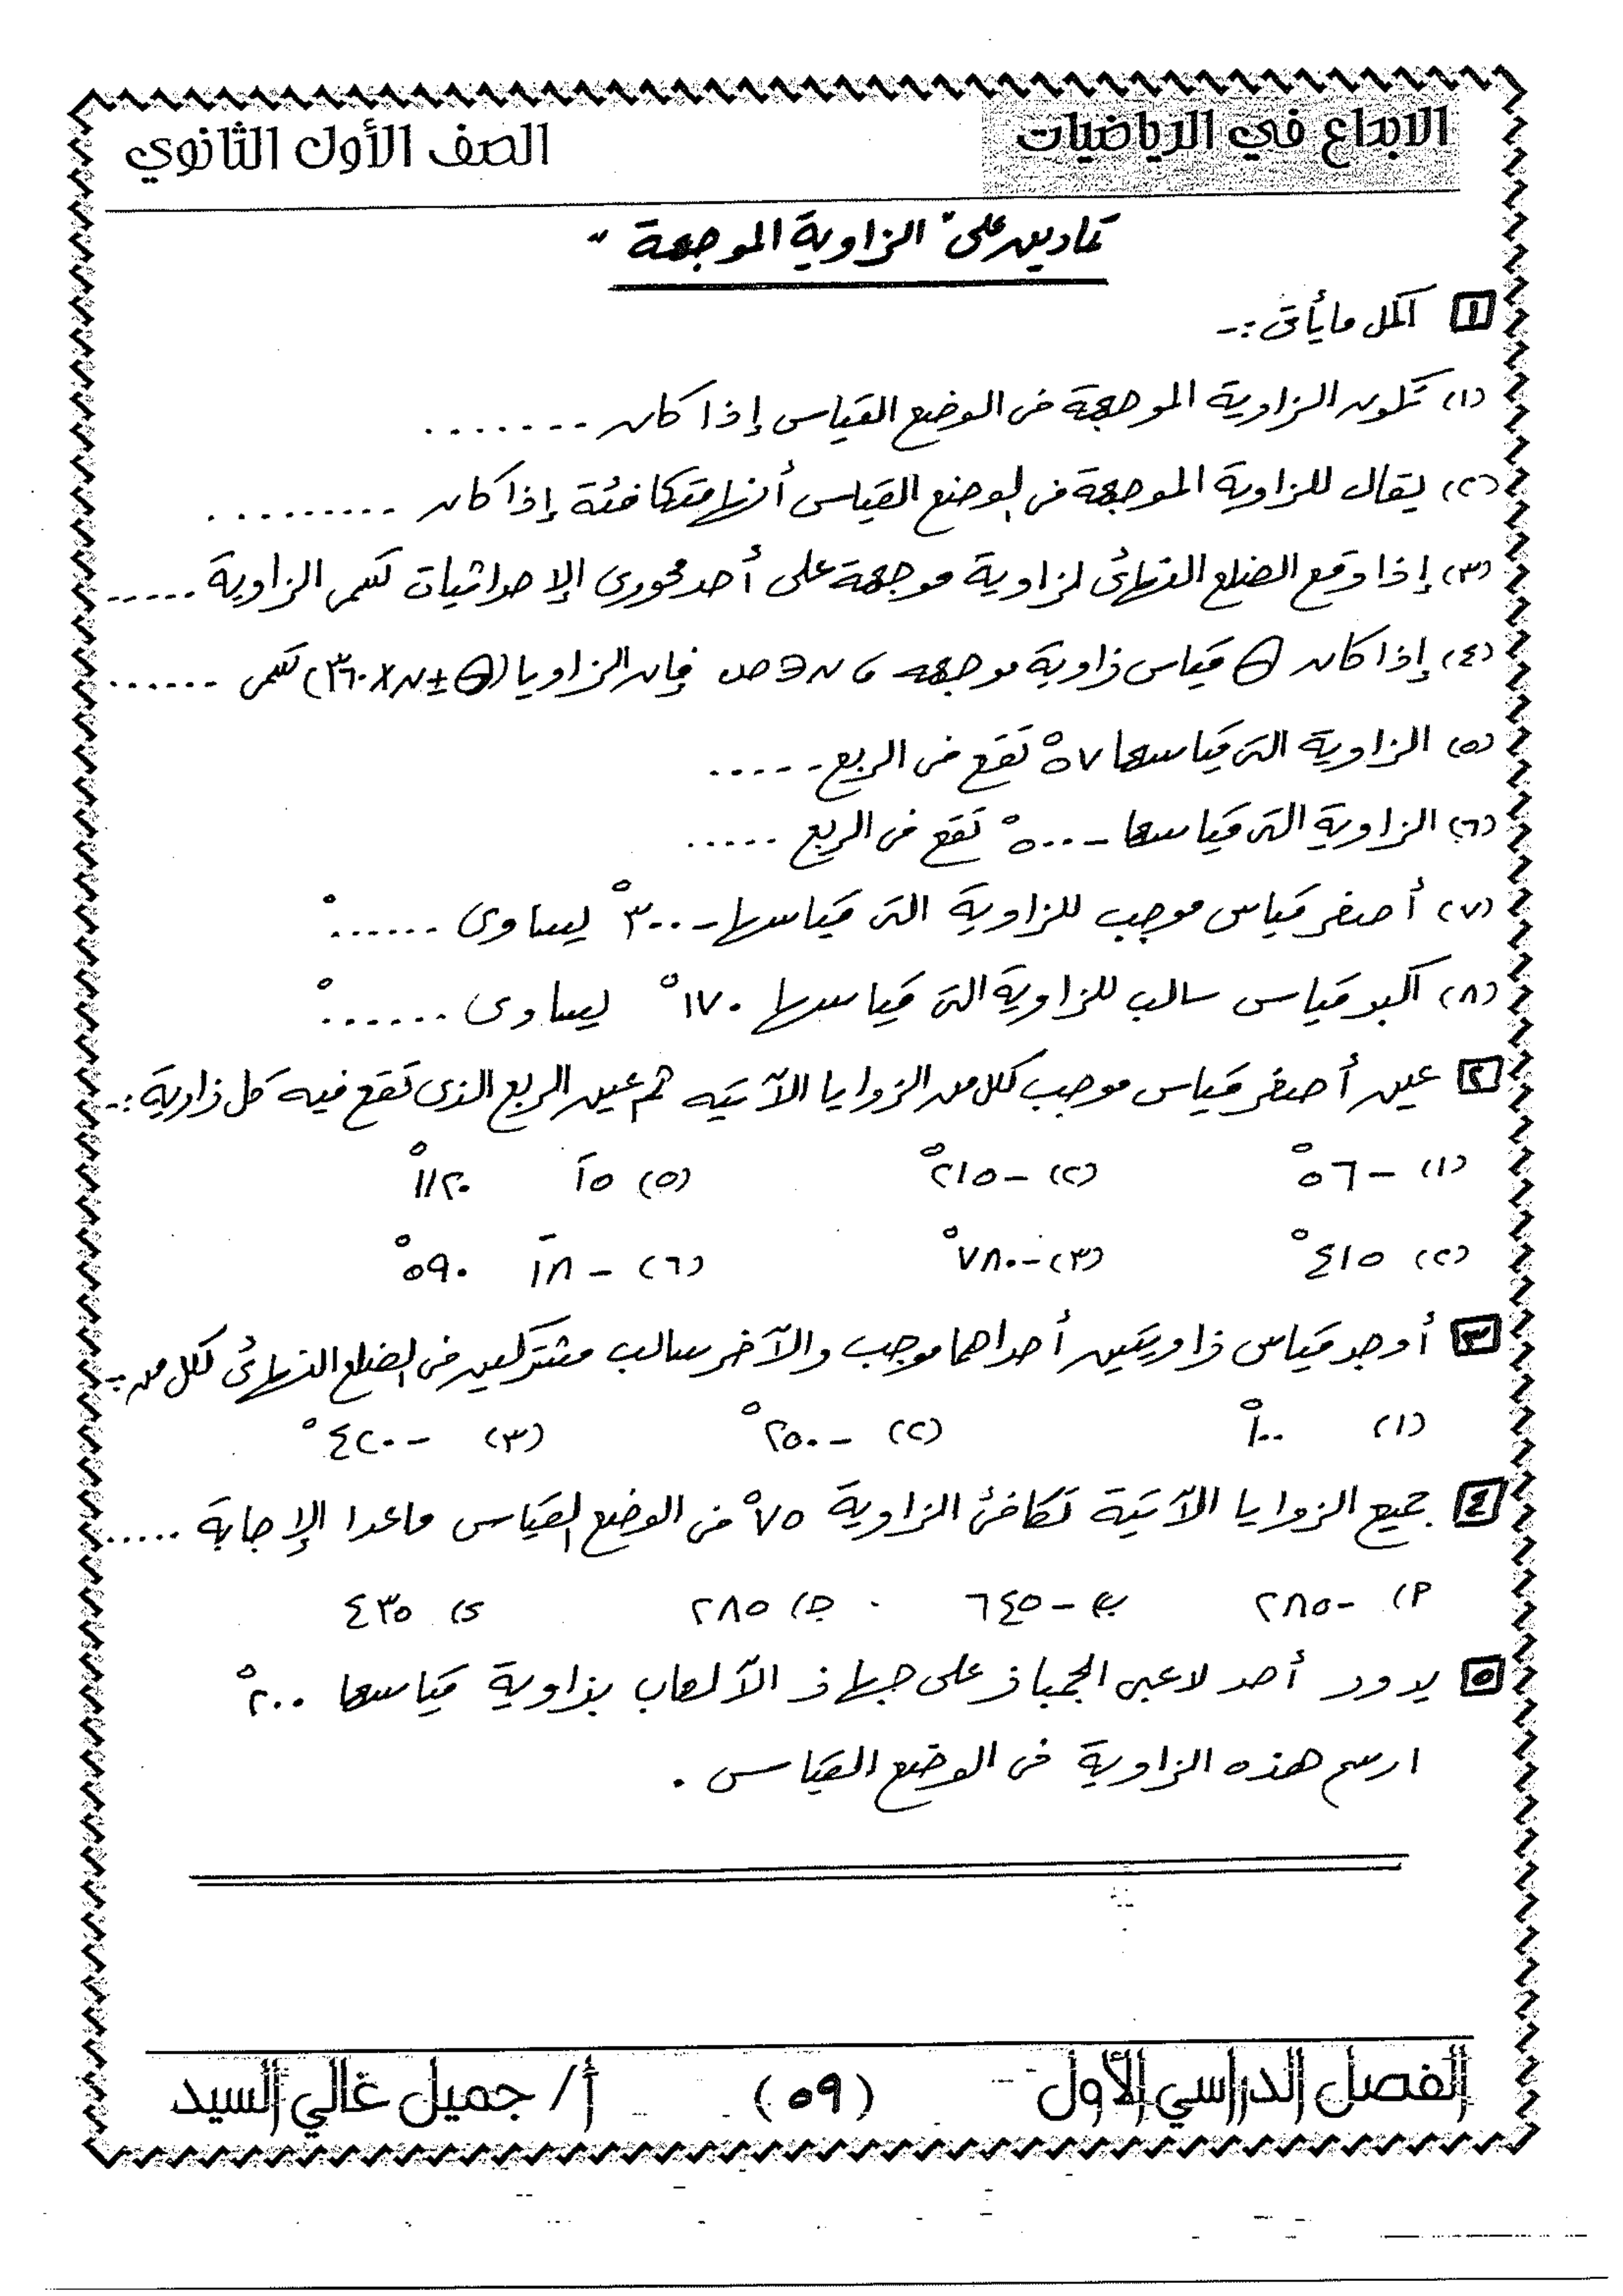 الابداع في الرياضيات
الصف الأول الثانوي
تمارين على "الزاوية الموجهة"
١ أكمل ما يأتى :-
(١) تكون الزاوية الموجهة فى الوضع القياسى إذا كان .......
(٢) يقال للزاوية الموجهة فى الوضع القياسى أنها متكافئة إذا كان .........
(٣) إذا وقع الضلع النهائى لزاوية موجهة على أحد محورى الإحداثيات تسمى الزاوية .....
(٤) إذا كان θ قياس زاوية موجهه ، ن ∈ ص فإن الزوايا (θ ± ن × ٣٦٠) تسمى ......
(٥) الزاوية التى قياسها ٥٧° تقع فى الربع .....
(٦) الزاوية التى قياسها -٥٠٠° تقع فى الربع .....
(٧) أصغر قياس موجب للزاوية التى قياسها -٣٠٠° يساوى ......°
(٨) أكبر قياس سالب للزاوية التى قياسها ١٧٠° يساوى ......°
٢ عين أصغر قياس موجب لكل من الزوايا الآتيه ثم عين الربع الذى تقع فيه كل زاوية :-
(١) -٥٦° (٢) -٢١٥° (٥) ١٥َ ١١٢٠°
(٢) ٤١٥° (٣) -٧٨٠° (٦) - ١٨َ ٥٩٠°
٣ أوجد قياس زاويتين أحداهما موجب والآخر سالب مشتركين فى الضلع النهائى لكل من :-
(١) ١٠٠° (٢) -٢٥٠° (٣) -٤٢٠°
٤ جميع الزوايا الآتية تكافئ الزاوية ٧٥° فى الوضع القياسى ماعدا الإجابة .....
٢) -٢٨٥ ب) -٦٤٥ ج) ٢٨٥ د) ٤٣٥
٥ يدور أحد لاعبى الجمباز على جهاز الألعاب بزاوية قياسها ٢٠٠°
ارسم هذه الزاوية فى الوضع القياسى .
الفصل الدراسي الأول
(٥٩)
أ/ جميل غالي السيد